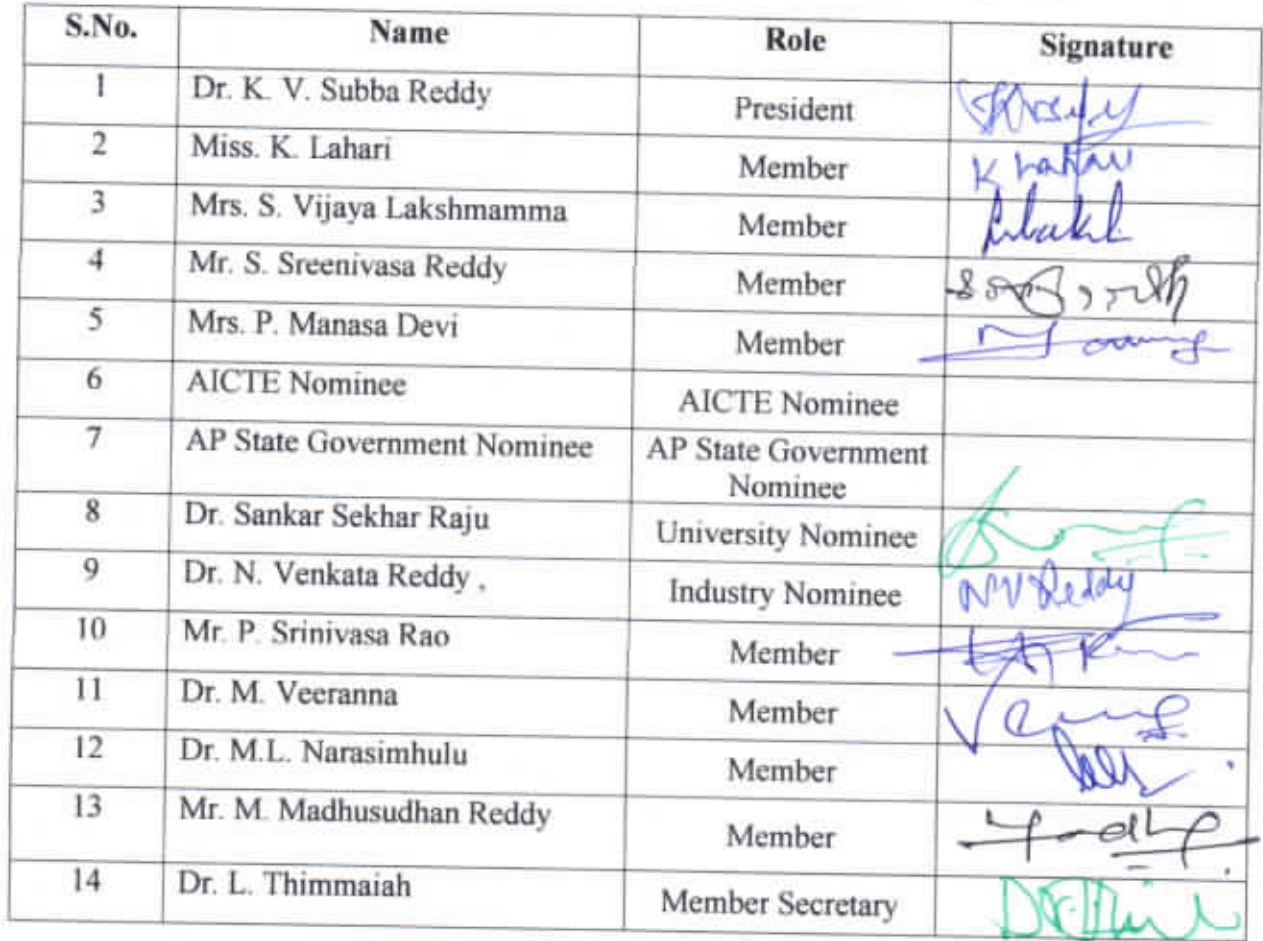 S.No. Name Role Signature
1 Dr. K. V. Subba Reddy President
2 Miss. K. Lahari Member K Lahari
3 Mrs. S. Vijaya Lakshmamma Member
4 Mr. S. Sreenivasa Reddy Member
5 Mrs. P. Manasa Devi Member
6 AICTE Nominee AICTE Nominee
7 AP State Government Nominee AP State Government
Nominee
8 Dr. Sankar Sekhar Raju University Nominee
9 Dr. N. Venkata Reddy , Industry Nominee NV Reddy
10 Mr. P. Srinivasa Rao Member
11 Dr. M. Veeranna Member
12 Dr. M.L. Narasimhulu Member
13 Mr. M. Madhusudhan Reddy Member
14 Dr. L. Thimmaiah Member Secretary